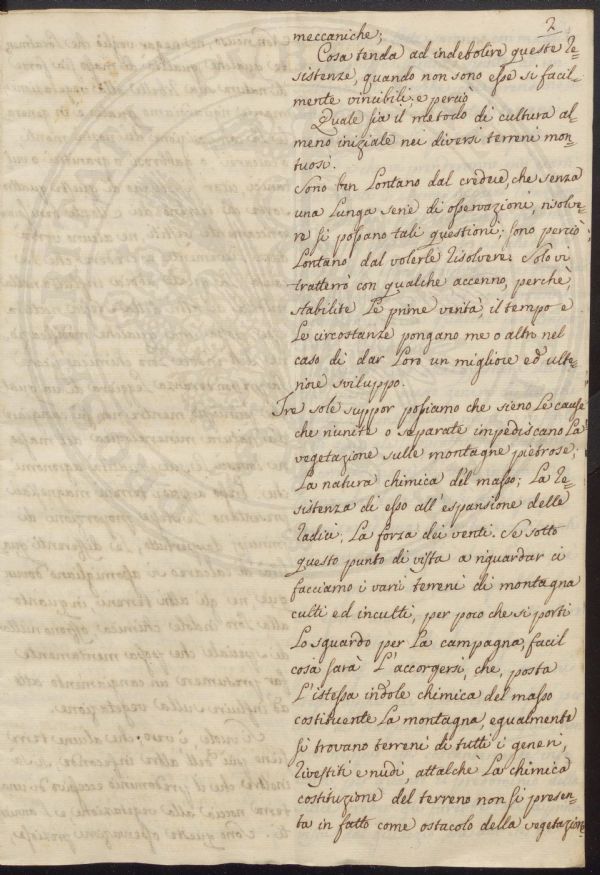 2
meccaniche;
Cosa tenda ad indebolire queste re=
sistenze, quando non sono esse sì facil=
mente vincibili; e perciò
Quale sia il metodo di cultura al=
meno iniziale nei diversi terreni mon=
tuosi.
Sono ben lontano dal credere, che senza
una lunga serie di osservazioni, risolve=
re si possano tali questioni; sono perciò
lontano dal volerle risolvere. Solo vi
tratterrò con qualche accenno, perchè,
stabilite le prime verità, il tempo e
le circostanze pongano me o altri nel
caso di dar loro un migliore ed ulte=
riore sviluppo.
Tre sole suppor possiamo che sieno le cause
che riunite o separate impediscano la
vegetazione sulle montagne pietrose;
la natura chimica del masso; la re=
sistenza di esso all'espansione delle
radici; la forza dei venti. Se sotto
questo punto di vista a riguardar ci
facciamo i vari terreni di montagna
culti ed inculti, per poco che si porti
lo sguardo per la campagna, facil
cosa sarà l'accorgersi, che, posta
l'istessa indole chimica del masso
costituente la montagna, egualmente
si trovano terreni di tutti i generi,
rivestiti e nudi, attalchè la chimica
costituzione del terreno non si presen=
ta in fatto come ostacolo della vegetazione